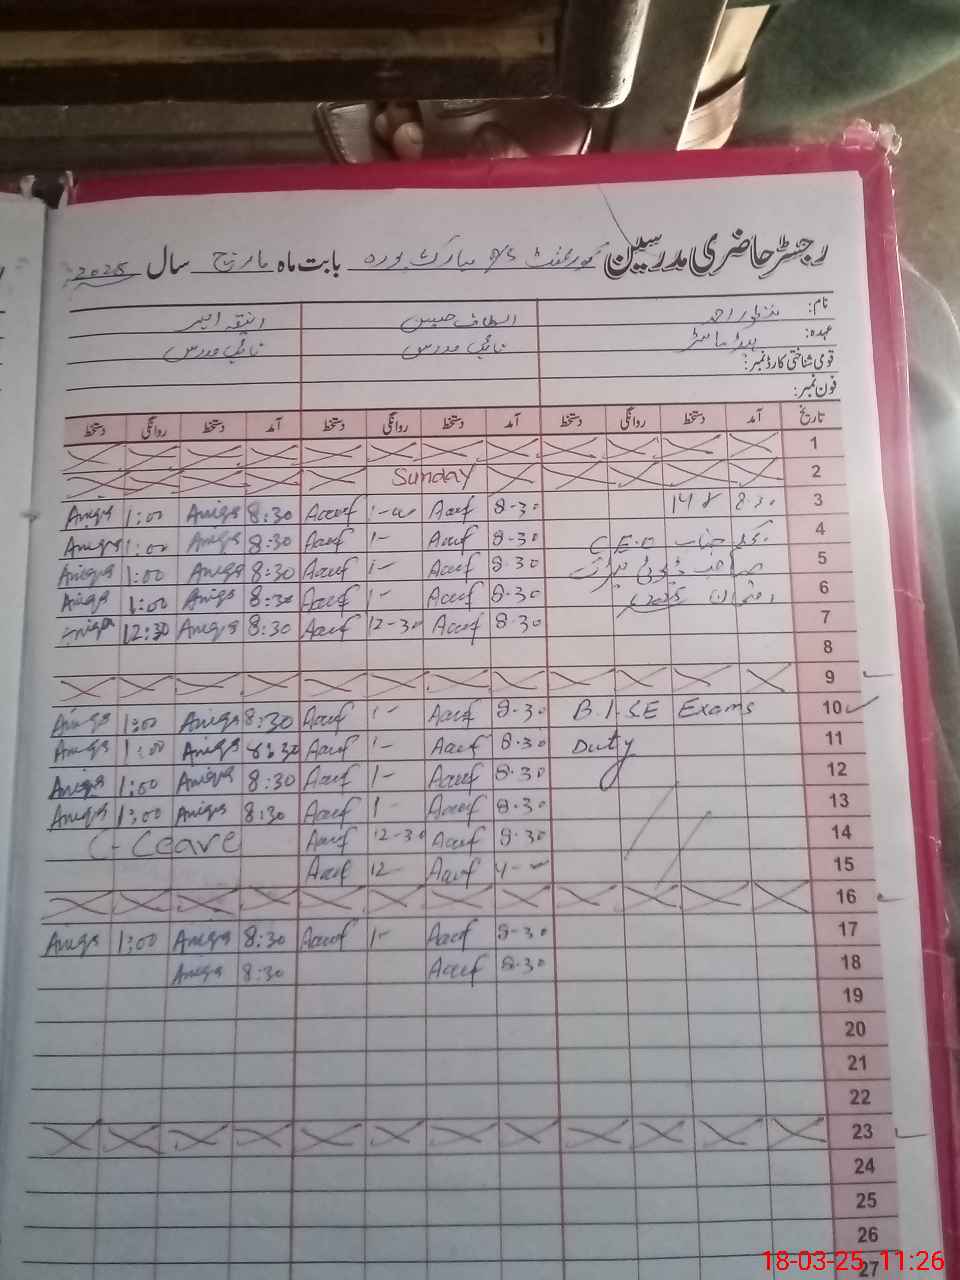 رجسٹر حاضری مدرسین گورنمنٹ P/S مبارک پورہ بابت ماہ مارچ سال 2025
نام: منظور احمد الطاف حسین انیقہ امیر
عہدہ: ہیڈ ماسٹر نائب مدرس نائب مدرس
قومی شناختی کارڈ نمبر:
فون نمبر:
تاریخ آمد دستخط روانگی دستخط آمد دستخط روانگی دستخط آمد دستخط روانگی دستخط
1
2 Sunday
3 8-30 8-30 Aauf 1-00 Aauf 8:30 Aniqa 1:00 Aniqa
4 جناب C.E.O 8-30 Aauf 1- Aauf 8:30 Aniqa 1:00 Aniqa
5 صاحب ڈیوٹی 8-30 Aauf 1- Aauf 8:30 Aniqa 1:00 Aniqa
6 2025 8-30 Aauf 1- Aauf 8:30 Aniqa 1:00 Aniqa
7 8-30 Aauf 12-30 Aauf 8:30 Aniqa 12:30 Aniqa
8
9
10 B.I.S.E Exams 8-30 Aauf 1- Aauf 8:30 Aniqa 1:00 Aniqa
11 Duty 8-30 Aauf 1- Aauf 8:30 Aniqa 1:00 Aniqa
12 8-30 Aauf 1- Aauf 8:30 Aniqa 1:00 Aniqa
13 8-30 Aauf 1- Aauf 8:30 Aniqa 1:00 Aniqa
14 8-30 Aauf 12-30 Aauf C-Leave
15 Aauf 12- Aauf
16
17 8-30 Aauf 1- Aauf 8:30 Aniqa 1:00 Aniqa
18 8-30 Aauf 8:30 Aniqa
19
20
21
22
23
24
25
26
27
18-03-25 11:26